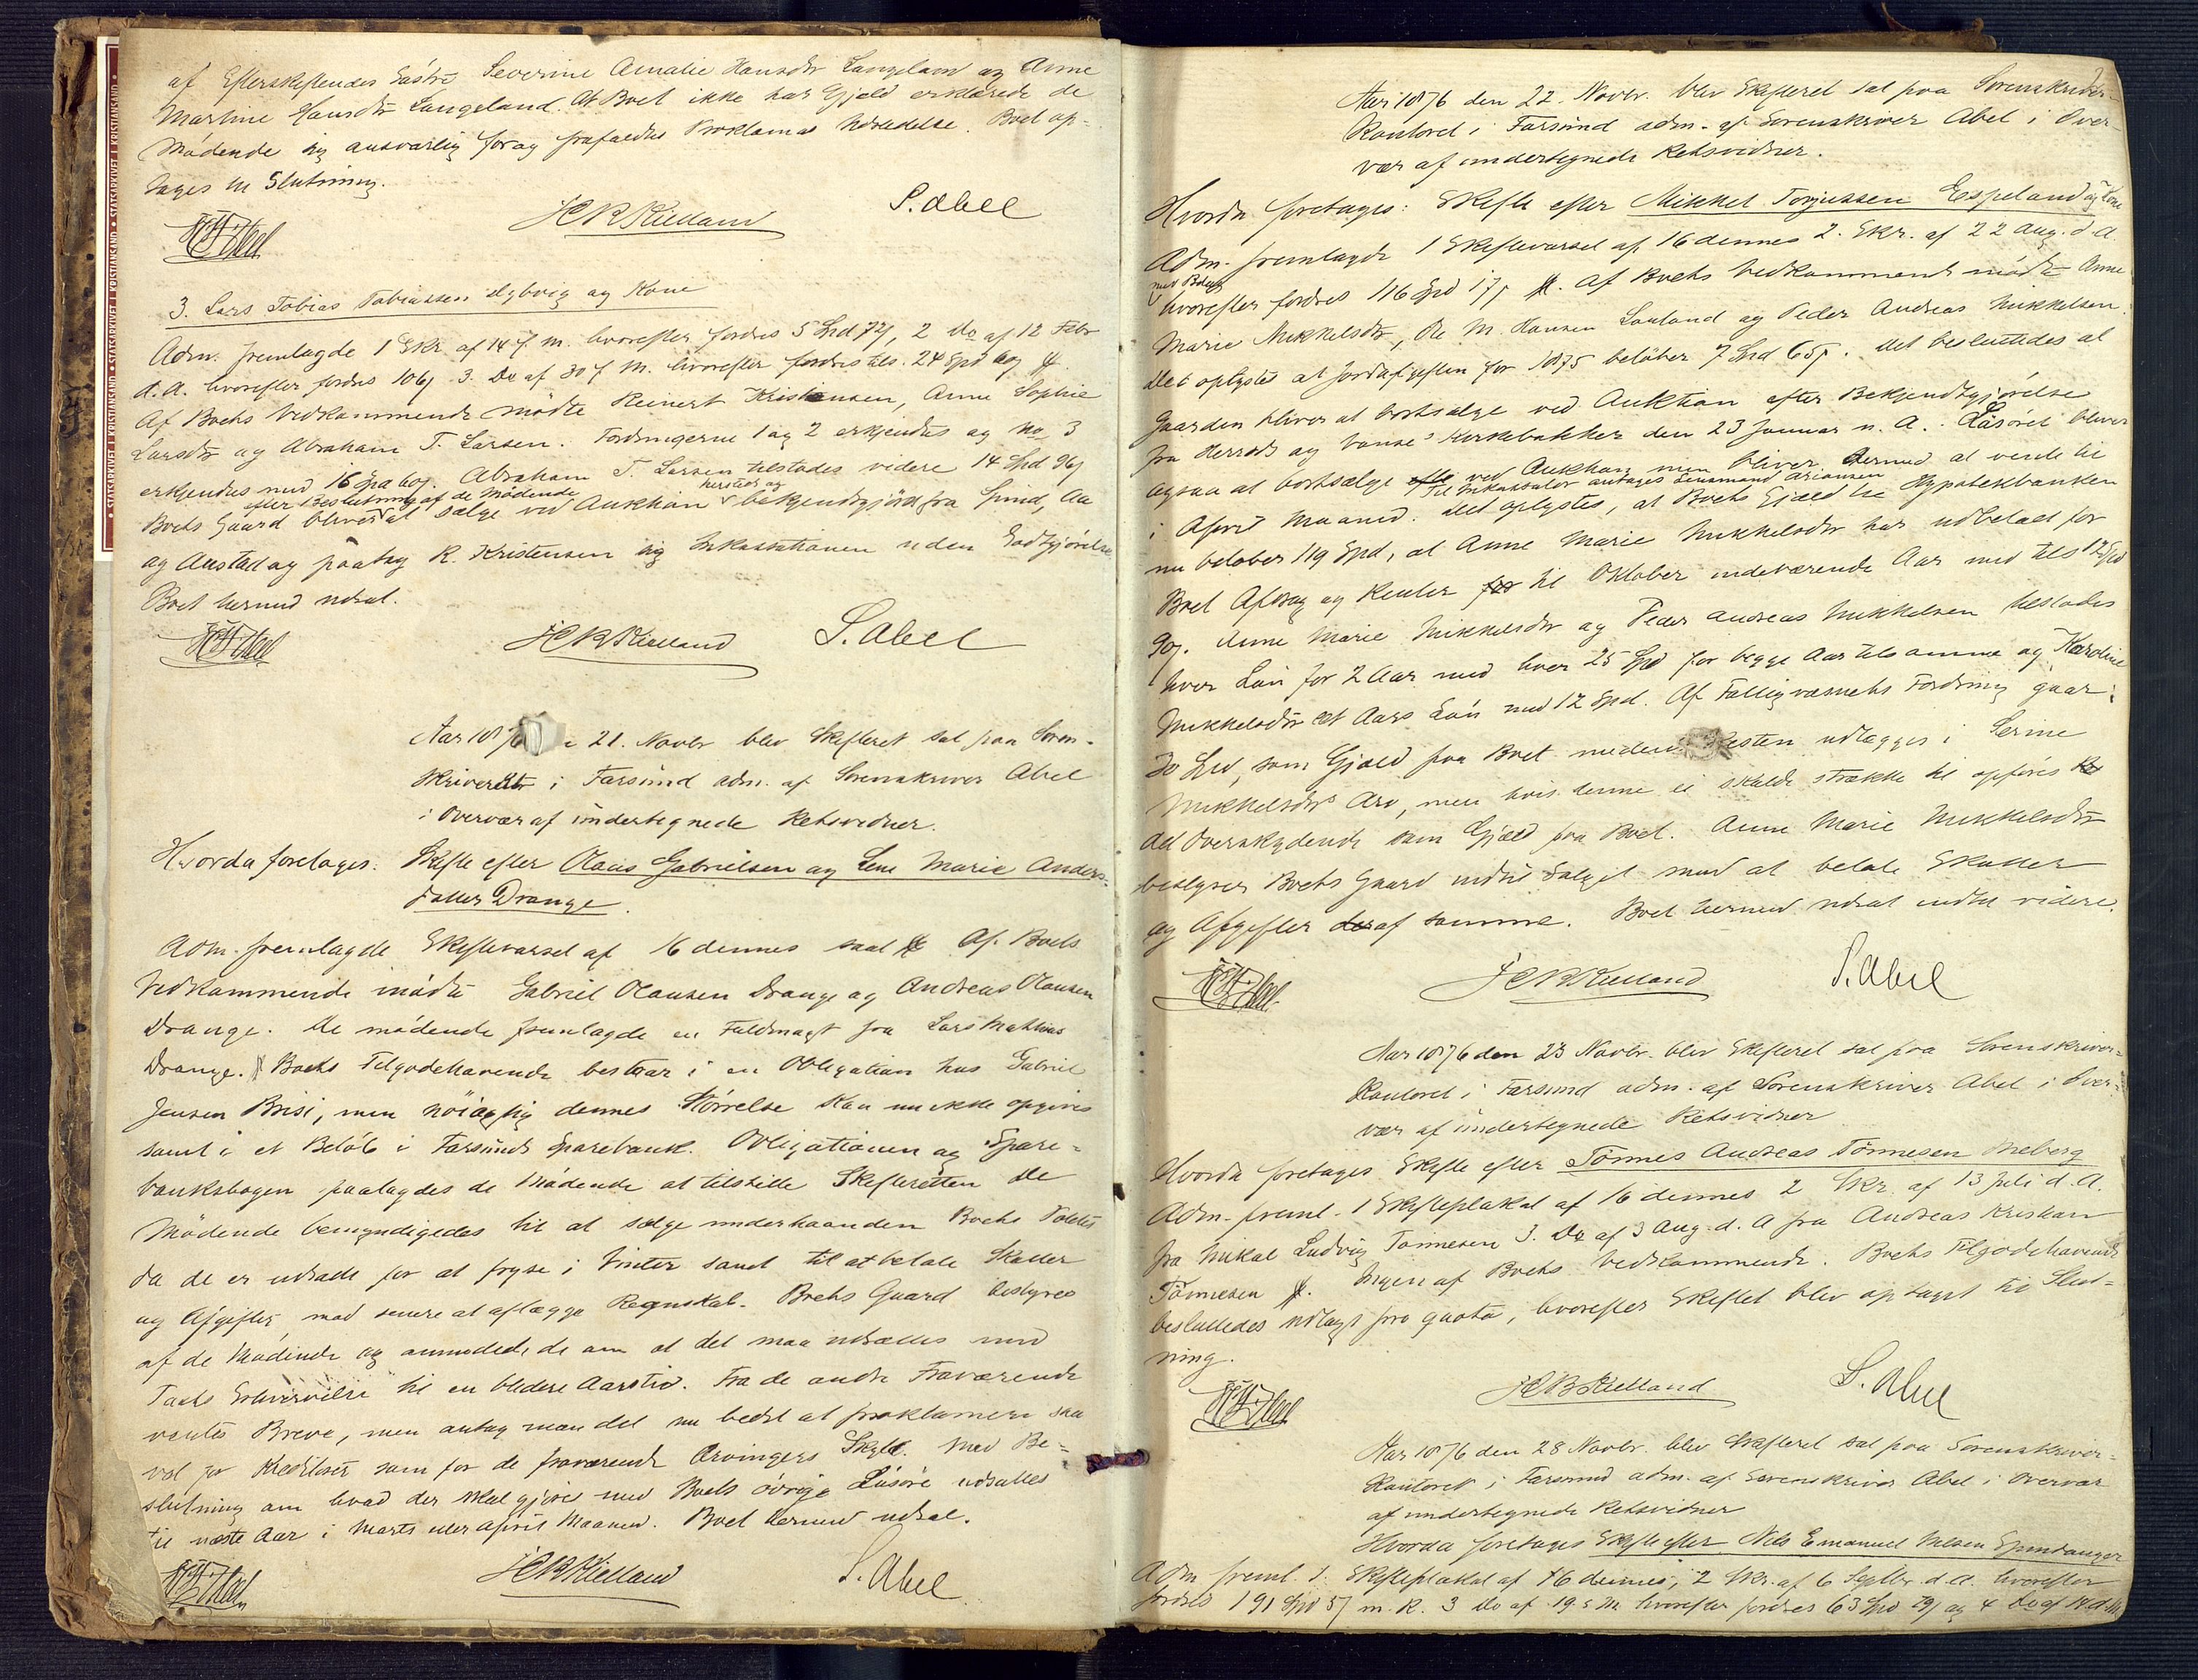 af Efterskeftendes Søstre Severine Amalie Hansdtr Langeland og Anne
Martine Hansdtr Langeland. At Boet ikke har Gjæld erklærede de
Mødende sig ansvarlig for og frafaldes Proklamas Udstedelse. Boet op-
tages til Slutning.
HCBKielland S. Abel
3. Lars Tobias Tobiassen Dybvig og Kone
Adm. fremlagde 1 Skr. af 14 f. M. hvorefter fordres 5 Spd 72 ẞ, 2 Do af 12 Febr
d.A. hvorefter fordres 106 ẞ 3. Do af 30 f M. hvorefter fordres tils. 24 Spd
Af Boets Vedkommende mødte Reinert Kristensen, Anne Sophie
Larsdtr og Abraham T. Larsen. Fordringerne 1 og 2 erkjendes og No 3
erkjendes med 16 Spd 60 ẞ. Abraham T. Larsen tilstodes videre 14 Spd 96 ẞ
efter Beslutning af de Mødende herstos og
Boets Gaard bliver at sælge ved Auktion bekjendtgjøres fra Spind, Aa
og Austad og paatog R. Kristensen sig Inkassationen uden Godtgjørelse
Boet hermed udsat.
HCBKielland S. Abel
Aar 1876 21. Novbr blev Skifteret sat paa Soren-
skriverktr i Farsund adm. af Sorenskriver Abel
i Overvær af undertegnede Retsvidner.
Hvorda foretages: Skifte efter Olaus Gabrielsen og Lene Marie Anders-
datter Drange.
Adm. fremlagde Skiftevarsel af 16 dennes saal. Af Boets
Vedkommende mødte Gabriel Olausen Drange og Andreas Olausen
Drange. De mødende fremlagde en Fuldmagt fra Lars Mathias
Drange. Boets Tilgodehavende bestaar i en Obligation hos Gabriel
Jensen Brisi, men nøiagtig dennes Størrelse kan nu ikke opgives
samt i et Beløb i Farsunds Sparebank. Obligationen og Spare-
banksbogen paalagdes de Mødende at tilstille Skifteretten De
Mødende bemyndigedes til at sælge underhaanden Boets Poteter
da de er udsatte for at fryse i Vinter samt til at betale Skatter
og Afgifter mod senere at aflægge Regnskab. Boets Gaard bestyres
af de Mødende og anmodede de om at det maa udsættes med
Taxts Erhvervelse til en bledere Aarstid. Fra de andre Fraværende
ventes Breve, men antog man det nu bedst at proklamere saa
vel for Kreditorer som for de fraværende Arvingers Skyld. Med Be-
slutning om hvad der skal gjøres med Boets øvrige Løsøre udsættes
til næste Aar i Marts eller April Maaned. Boet hermed udsat.
HCBKielland S. Abel
Aar 1876 den 22. Novbr. blev Skifteret sat paa Sorenskriver-
Kontoret i Farsund adm. af Sorenskriver Abel i Over-
vær af undertegnede Retsvidner.
Hvorda foretages: Skifte efter Mikkel Torjussen Espeland og Kone
Adm. fremlagde 1 Skiftevarsel af 16 dennes 2. Skr. af 22 Aug. d.A.
med Bilag
hvorefter fordres 116 Spd 17 ẞ. Af Boets Vedkommende mødte Anne
Marie Mikkelsdtr, Ole M. Hansen Lauland og Peder Andreas Mikkelsen
Det oplystes at Jordafgiften for 1875 beløber 7 Spd 65 ẞ. Det besluttedes at
Gaarden bliver at bortsælge ved Auktion efter Bekjendtgjørelse
fra Herreds og Vanse Kirkebakker den 23 Januar n. A. Løsøret bliver
ogsaa at bortsælge ved Auktion men bliver dermed at vente til
Til Inkassator antages Lensmand Ariansen
i April Maaned. Det oplystes, at Boets Gjæld til Hypotekbanken
nu beløber 119 Spd, at Anne Marie Mikkelsdtr har udbetalt for
Boet Afdrag og Renter for til Oktober indeværende Aar med tils 12 Spd
90 ẞ. Anne Marie Mikkelsdtr og Peder Andreas Mikkelsen tilstodes
hver Løn for 2 Aar med hver 25 Spd for begge Aar tilsammen og Karoline
Mikkelsdtr et Aars Løn med 12 Spd. Af Fattigvæsnets Fordring gaar
30 Spd, som Gjæld paa Boet medens Resten udlægges i Serine
Mikkelsdtrs Arv, men hvis denne ei skulde strække til opføres
det Overskydende som Gjæld paa Boet. Anne Marie Mikkelsdtr
bestyrer Boets Gaard indtil Salget mod at betale Skatter
og Afgifter deraf samme. Boet hermed udsat indtil videre.
HCBKielland S. Abel
Aar 1876 den 23 Novbr. blev Skifteret sat paa Sorenskriver-
Kontoret i Farsund adm. af Sorenskriver Abel i Over-
vær af undertegnede Retsvidner
Hvorda foretages Skifte efter Tønnes Andreas Tønnesen Meberg
Adm. freml. 1 Skifteplakat af 16 dennes 2 Skr. af 13 Juli d. A.
fra Mikal Ludvig Tønnesen 3. Do af 3 Aug. d. A fra Andreas Kristian
Tønnesen. Ingen af Boets Vedkommende. Boets Tilgodehavende
besluttedes udlagt pro quota, hvorefter Skiftet blev optaget til Slut-
ning.
HCBKielland S. Abel
Aar 1876 den 28 Novbr. blev Skifteret sat paa Sorenskriver-
Kontoret i Farsund adm. af Sorenskriver Abel i Overvær
af undertegnede Retsvidner
Hvorda foretages Skifte efter Nils Emanuel Nilsen Spendanger
Adm freml. 1. Skifteplakat af 16 dennes, 2 Skr. af 6 Septbr. d.A. hvorefter
fordres 191 Spd 57 m. R. 3 Do af 19. s M. hvorefter fordres 63 Spd 29 ẞ og 4 Do af